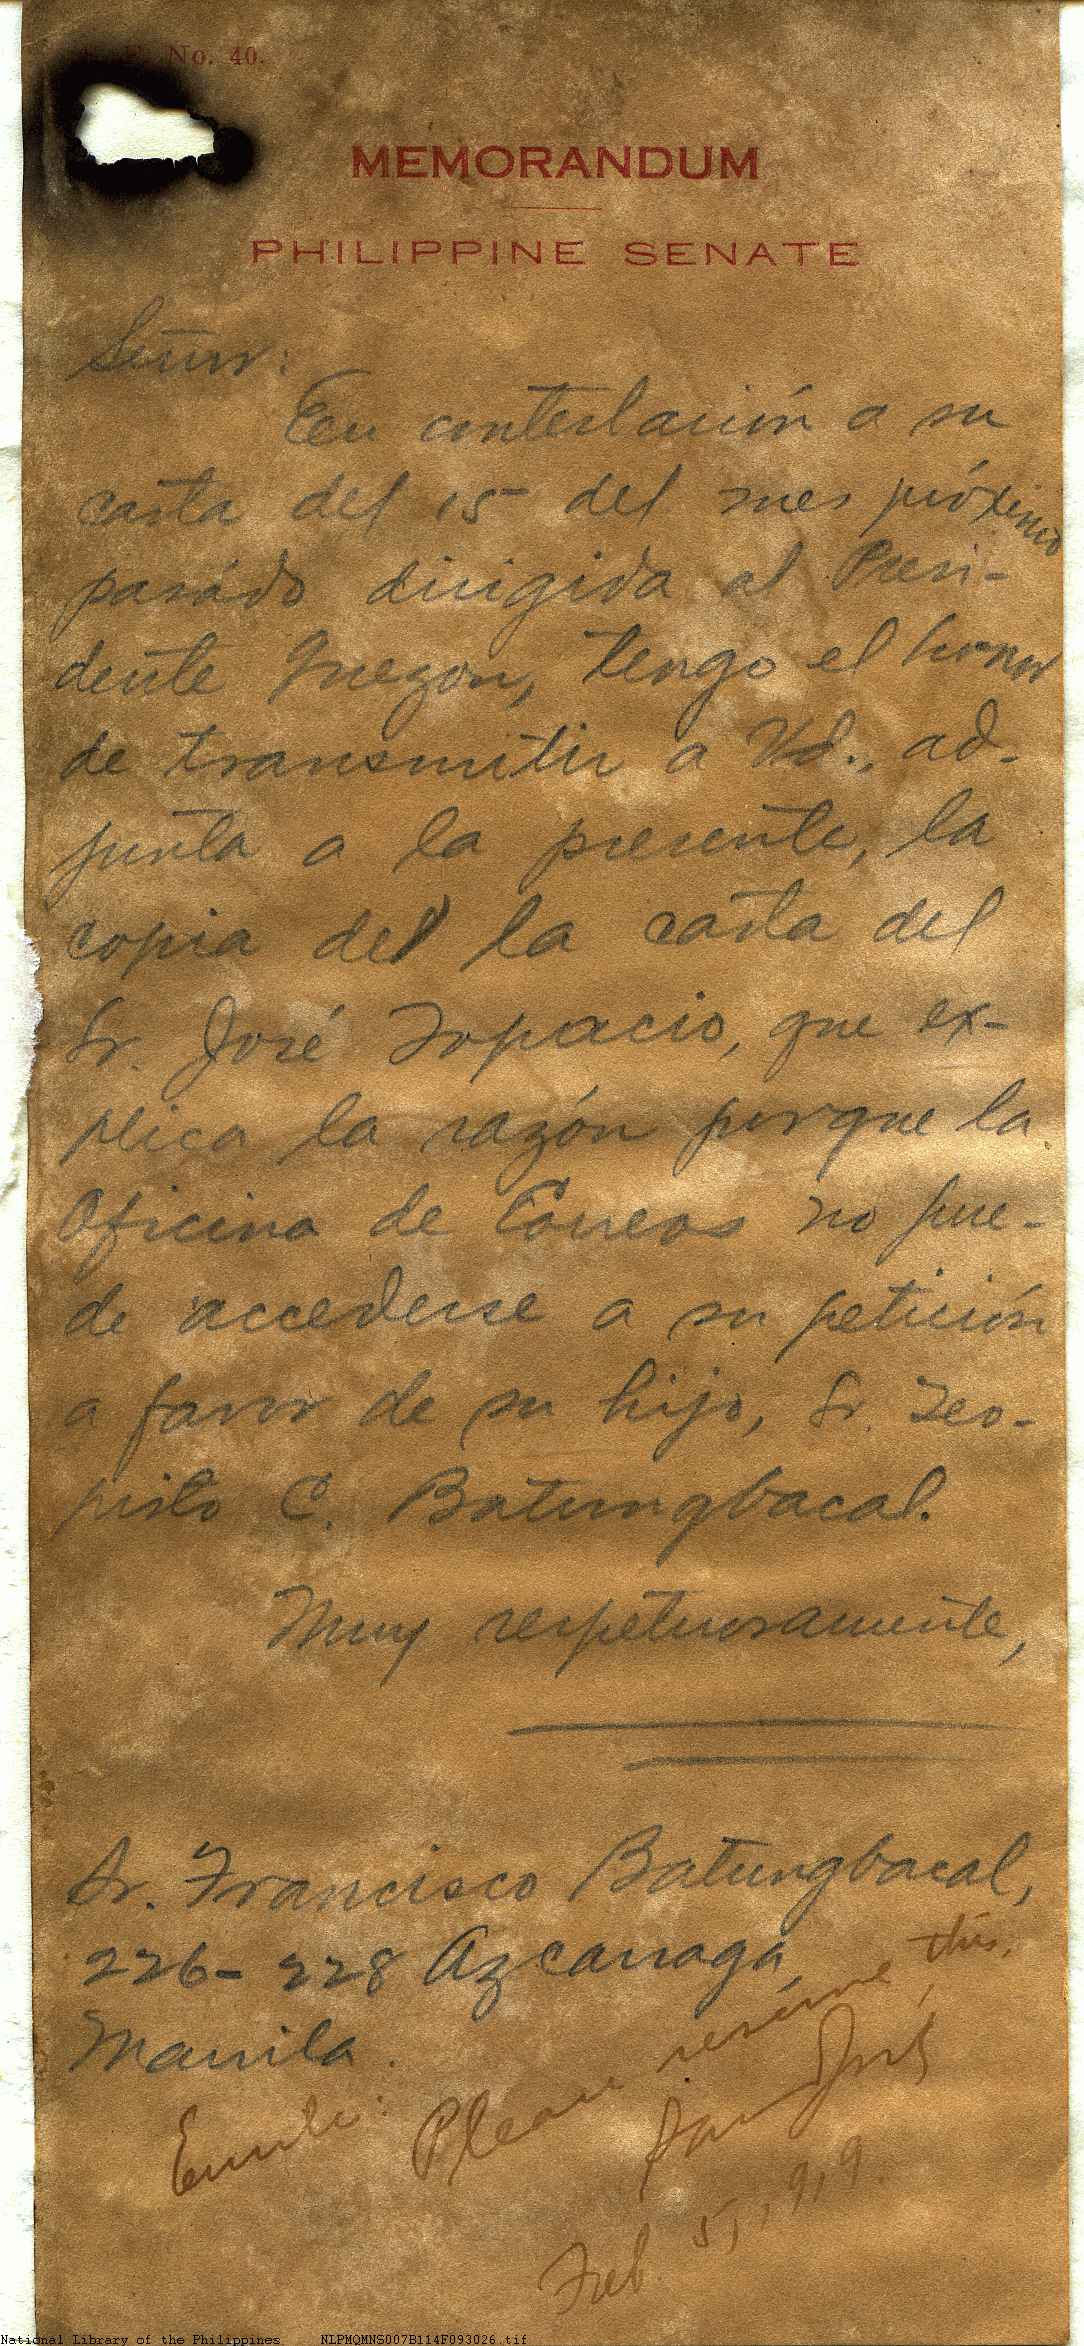 No. 40.
MEMORANDUM
PHILIPPINE SENATE
Señor:
En contestación a su
carta del 15 del mes próximo
pasado dirigida al Presi-
dente Quezon, tengo el honor
de transmitir a Vd., ad-
junta a la presente, la
copia de la carta del
Sr. José Topacio, que ex-
plica la razón porque la
Oficina de Correos no pue-
de accederse a su petición
a favor de su hijo, Sr. Teo-
pisto C. Batungbacal.
Muy respetuosamente,
Sr. Francisco Batungbacal,
226-228 Azcarraga,
Manila.
Please this.
Feb. 5, 1919
National Library of the Philippines NLPMQMNS007B114F093026.tif